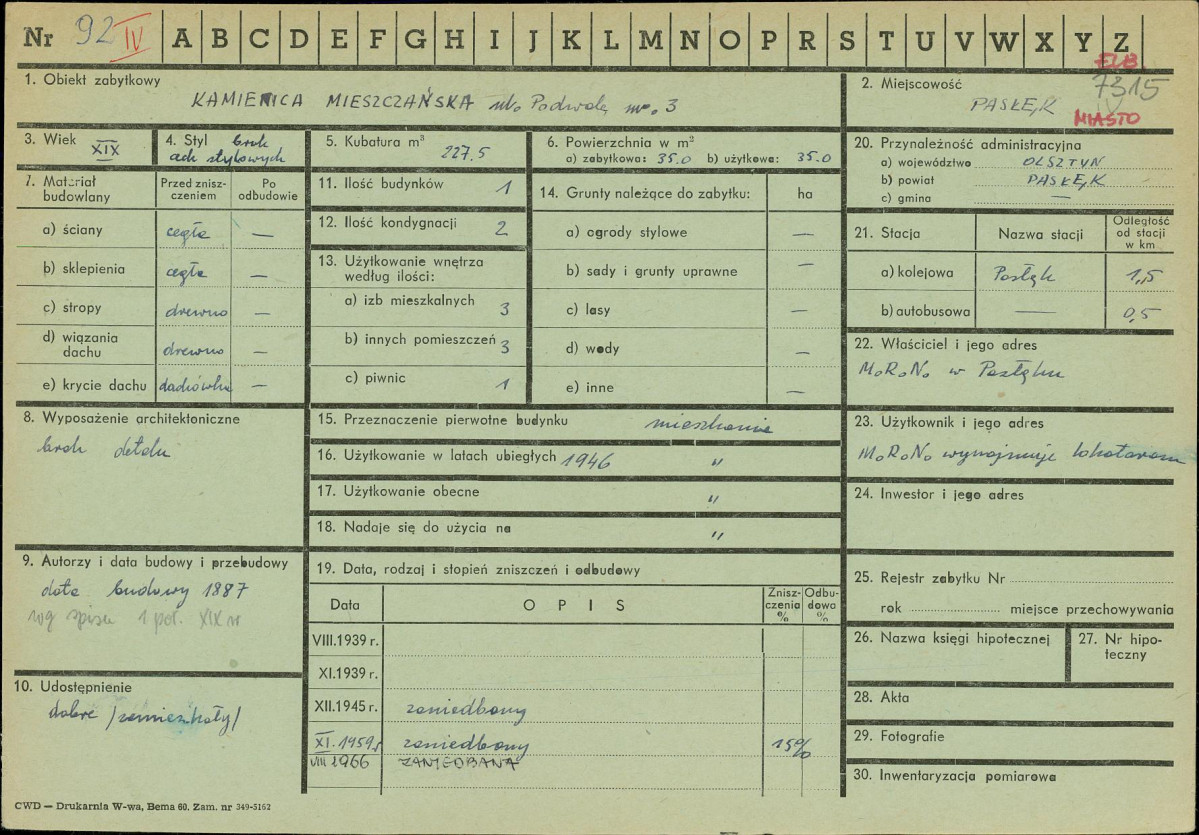 Nr 92 IV A B C D E F G H I J K L M N O P R S T U V W X Y Z
ELB
7315
MIASTO
1. Obiekt zabytkowy
KAMIENICA MIESZCZAŃSKA ul. Podwale nr. 3
2. Miejscowość
PASŁĘK
3. Wiek XIX
4. Styl brak
cech stylowych
5. Kubatura m³ 227.5
6. Powierzchnia w m²
a) zabytkowa: 35.0 b) użytkowa: 35.0
7. Materiał budowlany
Przed zniszczeniem
Po odbudowie
a) ściany cegła —
b) sklepienia cegła —
c) stropy drewno —
d) wiązania dachu drewno —
e) krycie dachu dachówka —
8. Wyposażenie architektoniczne
brak detalu
9. Autorzy i data budowy i przebudowy
data budowy 1887
wg spisu 1 poł. XIX w
10. Udostępnienie
dobre /zamieszkały/
11. Ilość budynków 1
12. Ilość kondygnacji 2
13. Użytkowanie wnętrza
według ilości:
a) izb mieszkalnych 3
b) innych pomieszczeń 3
c) piwnic 1
14. Grunty należące do zabytku: ha
a) ogrody stylowe —
b) sady i grunty uprawne —
c) lasy —
d) wody —
e) inne —
15. Przeznaczenie pierwotne budynku mieszkanie
16. Użytkowanie w latach ubiegłych 1946 "
17. Użytkowanie obecne "
18. Nadaje się do użycia na "
19. Data, rodzaj i stopień zniszczeń i odbudowy
Data OPIS Zniszczenia % Odbudowa %
VIII.1939 r.
XI.1939 r.
XII.1945 r. zaniedbany
XI.1959 r zaniedbany 15%
VIII 1966 ZANIEDBANA
20. Przynależność administracyjna
a) województwo OLSZTYN
b) powiat PASŁĘK
c) gmina —
21. Stacja Nazwa stacji Odległość od stacji w km
a) kolejowa Pasłęk 1,5
b) autobusowa — 0,5
22. Właściciel i jego adres
M.R.N. w Pasłęku
23. Użytkownik i jego adres
M.R.N. wynajmuje lokatorom
24. Inwestor i jego adres
25. Rejestr zabytku Nr
rok miejsce przechowywania
26. Nazwa księgi hipotecznej
27. Nr hipoteczny
28. Akta
29. Fotografie
30. Inwentaryzacja pomiarowa
CWD — Drukarnia W-wa, Bema 60. Zam. nr 349-5162